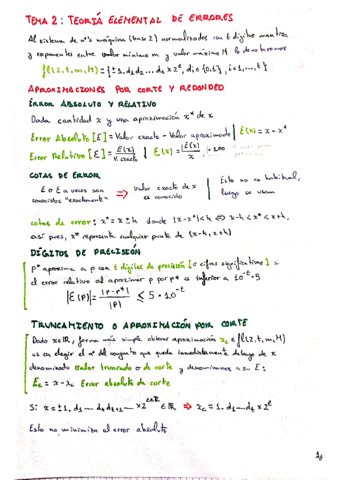 TEMA 2: TEORÍA ELEMENTAL DE ERRORES
Al sistema de nos máquina (base 2) normalizados con t dígitos mantisa
y exponentes entre valor mínimo m y valor máximo M lo denotaremos
fl(2,t,m,M) = {±1.d₁d₂...dt × 2^e, di ∈ {0,1}, i=1,...,t}
APROXIMACIONES POR CORTE Y REDONDEO
ERROR ABSOLUTO Y RELATIVO
Dada cantidad x y una aproximación x* de x
Error Absoluto [E] = Valor exacto - Valor aproximado | E(x) = x - x*
Error Relativo [Ɛ] = E(x)/V. exacto | Ɛ(x) = |E(x)|/x · 100
COTAS DE ERROR
E o Ɛ a veces son conocidos "exactamente" ⇒ Valor exacto de x es conocido | Esto no es habitual, luego se usan
cotas de error: x* = x ± h donde |x - x*| < h ⇔ x-h < x* < x+h,
así pues, x* representa cualquier punto de (x-h, x+h)
DÍGITOS DE PRECISIÓN
p* aproxima a p con t dígitos de precisión [o cifras significativas] si
el error relativo al aproximar p por p* es inferior a 10^-t · 5
|Ɛ(p)| = |p - p*|/|p| ≤ 5 · 10^-t
TRUNCAMIENTO O APROXIMACIÓN POR CORTE
Dado x∈ℝ, forma más simple obtener aproximación xc ∈ fl(2,t,m,M)
es en elegir el nº del conjunto que queda inmediatamente debajo de x
denominado valor truncado o de corte y denominamos a su E:
Ec = x - xc Error absoluto de corte
Si x = ±1.d₁...dt dt+1... × 2^e ∈ ℝ ⇒ xc = 1.d₁...dt × 2^e
Esto no minimiza el error absoluto